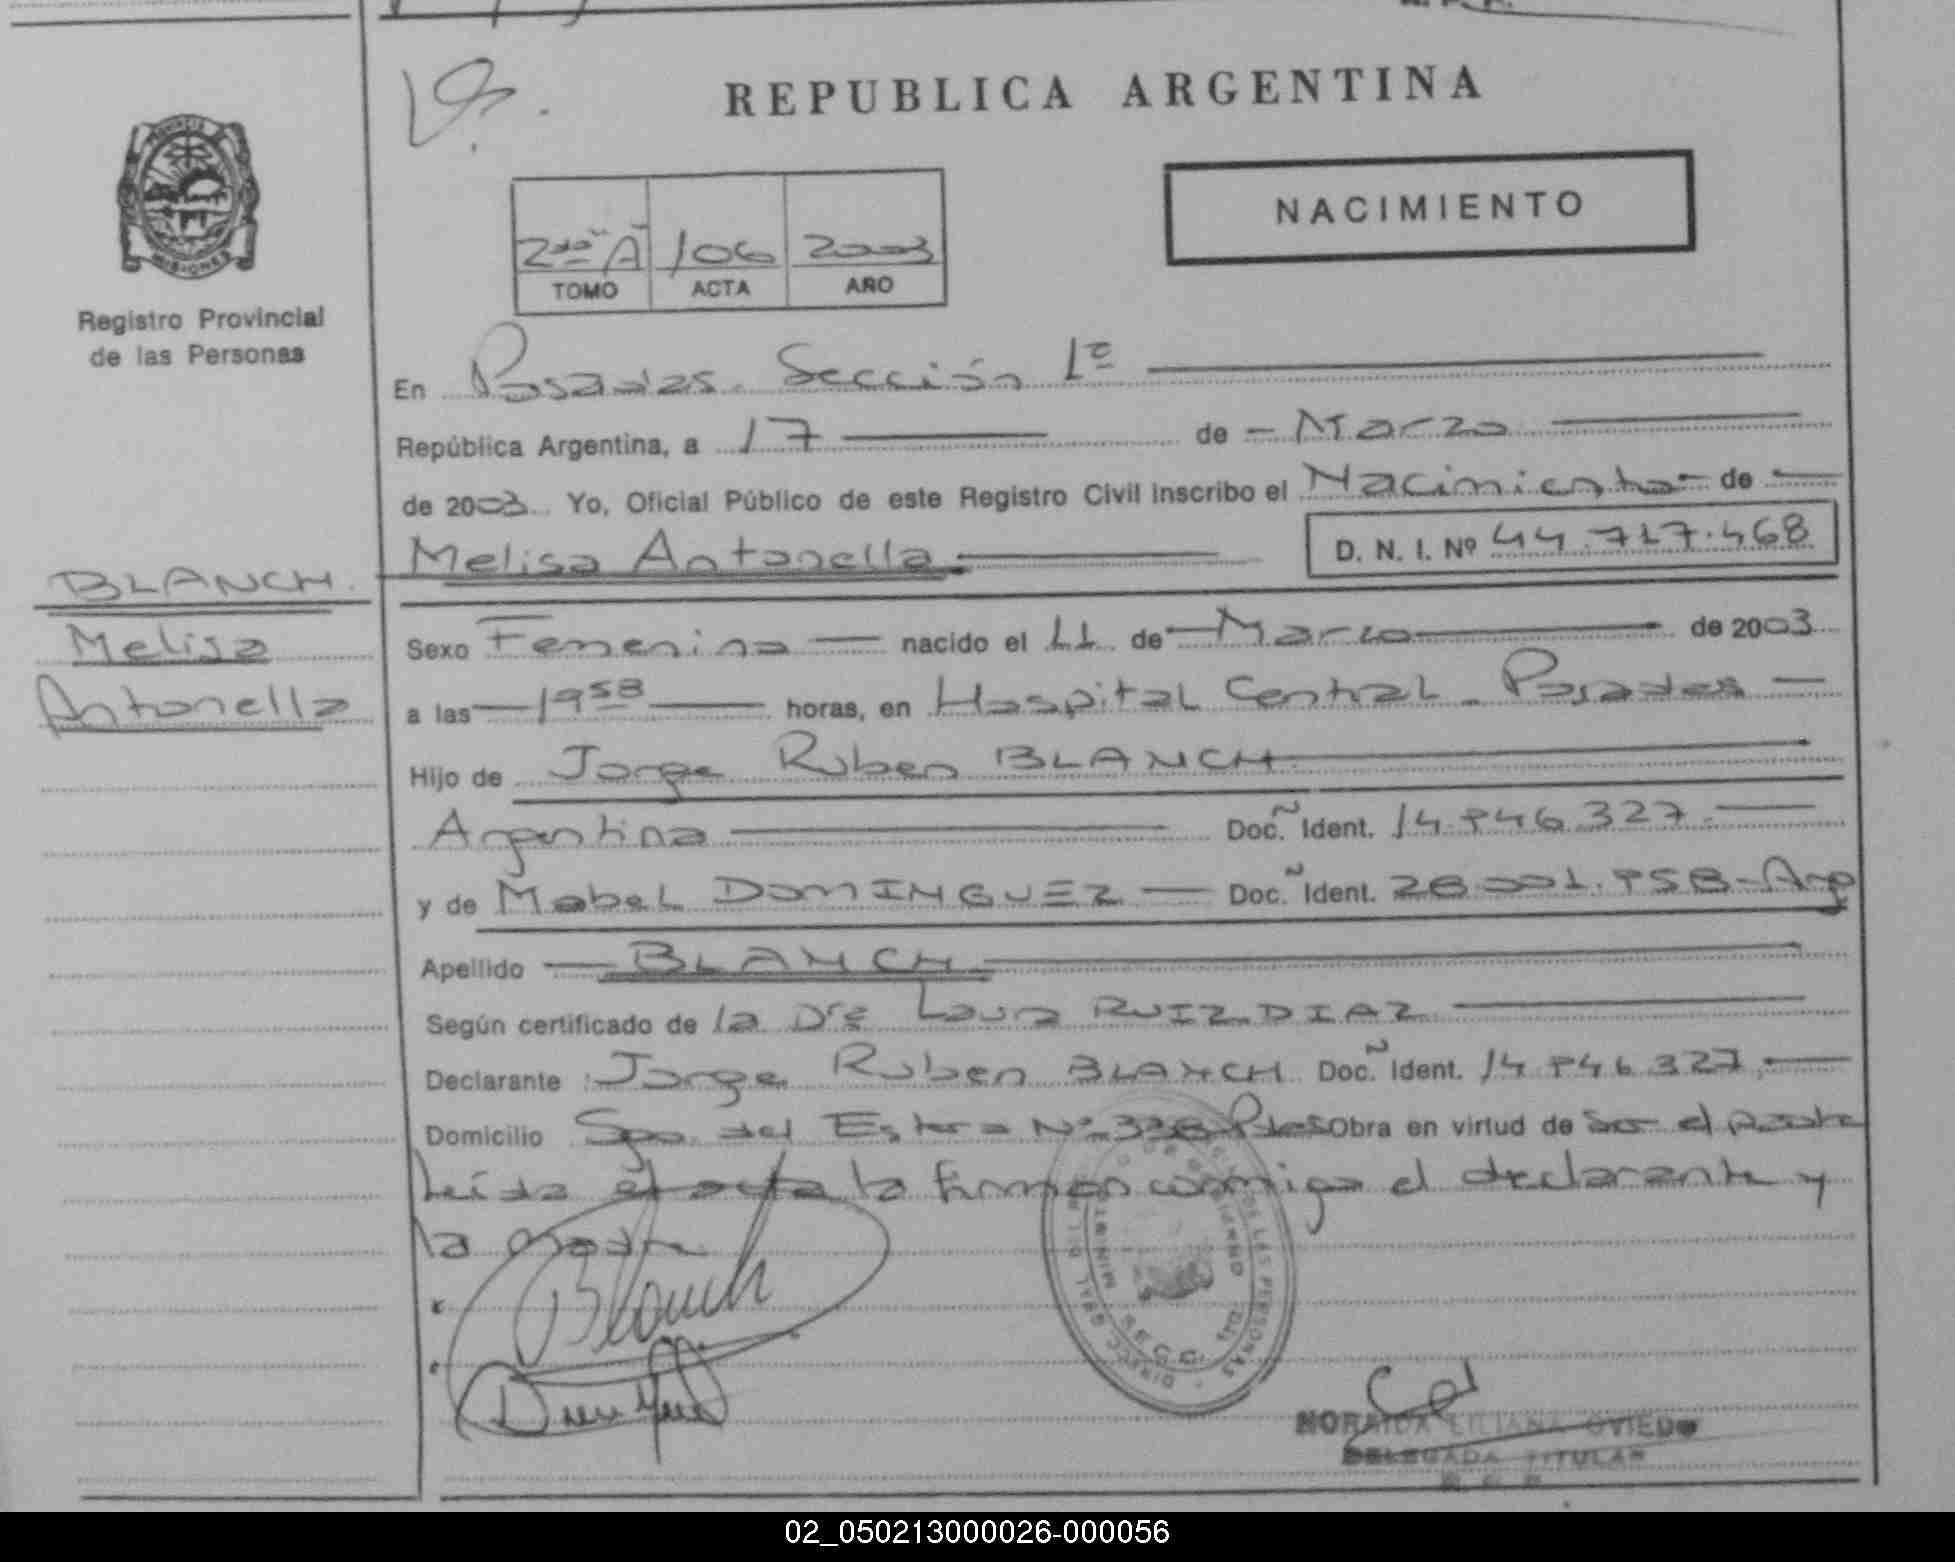 REPUBLICA ARGENTINA
PROVINCIA
MISIONES
NACIMIENTO
2do "A" 106 2003
TOMO ACTA AÑO
Registro Provincial
de las Personas
En Posadas. Sección 1º
República Argentina, a 17 de Marzo
de 2003 Yo, Oficial Público de este Registro Civil inscribo el Nacimiento de
Melisa Antonella D. N. I. Nº 44.717.468
BLANCH.
Melisa
Antonella
Sexo Femenino nacido el 11 de Marzo de 2003
a las 19 58 horas, en Hospital Central - Posadas
Hijo de Jorge Ruben BLANCH
Argentina Doc. Ident. 14.946.327.
y de Mabel DOMINGUEZ Doc. Ident. 28.001.958-Arg
Apellido BLANCH
Según certificado de la Dra Laura RUIZ DIAZ
Declarante Jorge Ruben BLANCH Doc. Ident. 14.946.327
Domicilio Sgo. del Estero Nº Obra en virtud de ser el padre
Leida el acta la firman conmigo el declarante y
la madre
Blanch
DE LAS PERSONAS
NORAIDA LILIANA OVIEDO
DELEGADA TITULAR
02_050213000026-000056